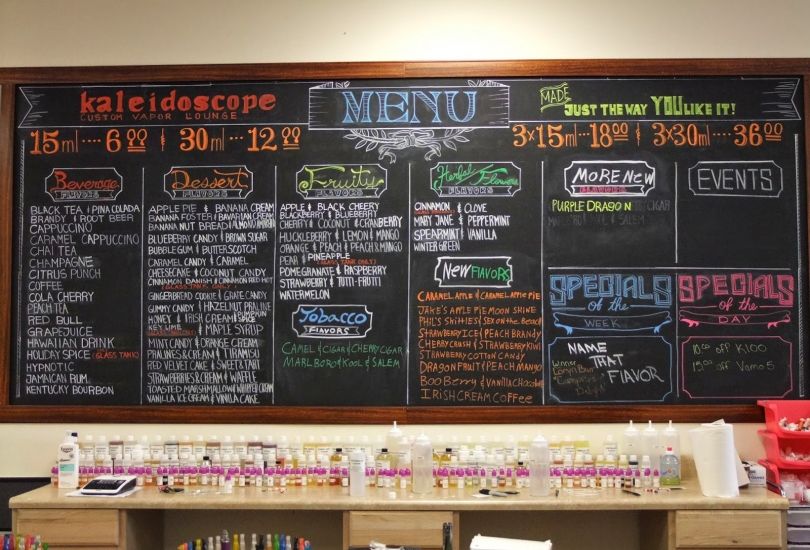 kaleidoscope
CUSTOM VAPOR LOUNGE
MENU
MADE
JUST THE WAY YOU LIKE IT!
15ml...6 00 | 30ml...12 00
3x15ml...18 00 | 3x30ml...36 00
Beverage
FLAVORS
BLACK TEA | PINA COLADA
BRANDY | ROOT BEER
CAPPUCCINO
CARAMEL CAPPUCCINO
CHAI TEA
CHAMPAGNE
CITRUS PUNCH
COFFEE
COLA CHERRY
PEACH TEA
RED BULL
GRAPE JUICE
HAWAIIAN DRINK
HOLIDAY SPICE (GLASS TANK)
HYPNOTIC
JAMAICAN RUM
KENTUCKY BOURBON
Dessert
FLAVORS
APPLE PIE & BANANA CREAM
BANANA FOSTER | BAVARIAN CREAM
BANANA NUT BREAD
BLUEBERRY CANDY | BROWN SUGAR
BUBBLEGUM | BUTTERSCOTCH
CANDY CANE | CARAMEL
CHEESECAKE | COCONUT CANDY
CINNAMON DANISH | CINNAMON RED HOT
(GLASS TANK ONLY)
GINGERBREAD COOKIE | GRAPE CANDY
GUMMY CANDY | HAZELNUT PRALINE
HONEY | IRISH CREAM | PUMPKIN SPICE
KEY LIME & MAPLE SYRUP
MINT CANDY | ORANGE CREAM
PRALINES & CREAM | TIRAMISU
RED VELVET CAKE | SWEET TART
STRAWBERRIES & CREAM | WAFFLE
TOASTED MARSHMALLOW | WHIPPED CREAM
VANILLA ICE CREAM | VANILLA CAKE
Fruity
FLAVORS
APPLE & BLACK CHEERY
BLACKBERRY & BLUEBERRY
CHERRY | COCONUT | CRANBERRY
HUCKLEBERRY | LEMON | MANGO
ORANGE & PEACH | PEACH MANGO
PEAR | PINEAPPLE
(GLASS TANK ONLY)
POMEGRANATE | RASPBERRY
STRAWBERRY | TUTTI-FRUITTI
WATERMELON
Tobacco
FLAVORS
CAMEL & CIGAR | CHERRY CIGAR
MARLBORO | KOOL & SALEM
Herbal & Flowers
FLAVORS
CINNAMON & CLOVE
MARY JANE & PEPPERMINT
SPEARMINT | VANILLA
WINTER GREEN
NEW FLAVORS
CARAMEL APPLE | CARAMEL APPLE PIE
JAKE'S APPLE PIE MOON SHINE
PHIL'S SHITIES | SEX ON THE BEACH
STRAWBERRY ICE | PEACH BRANDY
CHERRY CRUSH | STRAWBERRY KIWI
STRAWBERRY COTTON CANDY
DRAGON FRUIT | PEACH MANGO
BOO BERRY & VANILLA CHOCOLATE
IRISH CREAM COFFEE
MORE NEW
FLAVORS
PURPLE DRAGON
EVENTS
SPECIALS
of the
WEEK
NAME
THAT
FLAVOR
SPECIALS
of the
DAY
10.00 off K100
15.00 off Vamo 5